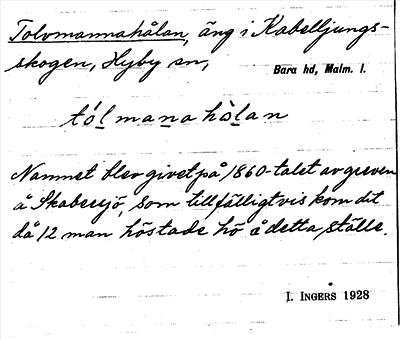 Tolvmannahålan, äng i Kabelljungs-
skogen, Hyby sn,
Bara hd, Malm. l.
tólmanahòlan
Namnet blev givet på 1860-talet av greven
å Skabersjö, som tillfälligtvis kom dit
då 12 man höstade hö å detta ställe.
I. INGERS 1928